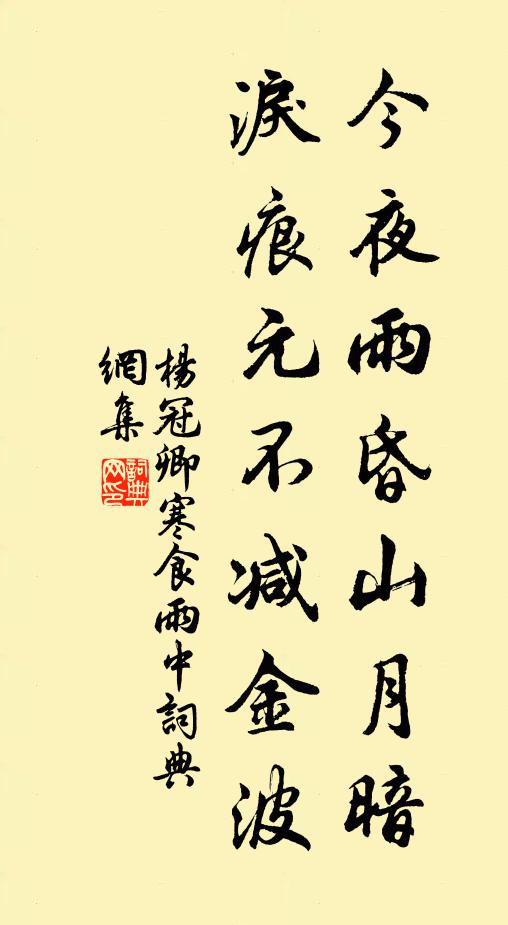 今夜雨昏山月暗
淚痕元不减金波
楊冠卿寒食雨中詞典
網集
詞典網印